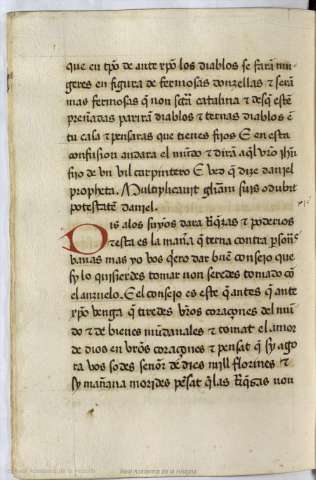 que en tp̃o de ante xp̃o los diablos se farã mu
geres en figura de fermosas donzellas ⁊ serã
mas fermosas q̃ non sctã catalina ⁊ desq̃ estẽ
preñadas parirã diablos ⁊ ternas diablos ẽ
tu casa ⁊ pensaras que tienes fijos E en esta
confusion andara el mũdo ⁊ dirã aq̃l vr̃o jhũ
fijo de vn vil carpintero E ved q̃ dize daniel
propheta. Multiplicauit gl̃iam suis ⁊
potestatẽ daniel.
Dis a los suyos dara Riq̃zas ⁊ poderios
⁊ esta es la mañ̃a q̃ terna contra p̃sonas
vanas mas yo vos q̃ero dar buẽ consejo que
sy lo quisierdes tomar non seredes tomado cõ
el anzuelo. E el consejo es este q̃ antes q̃ ante
xp̃o venga q̃ tiredes vr̃os coraçones del mũ
do ⁊ de bienes mũdanales ⁊ tomat el amor
de dios en vr̃os coraçones ⁊ pensat q̃ sy ago
ra vos sodes señor de dies mill florines ⁊
sy mañana morides pẽsat q̃ las Riq̃zas non
Real Academia de la Historia